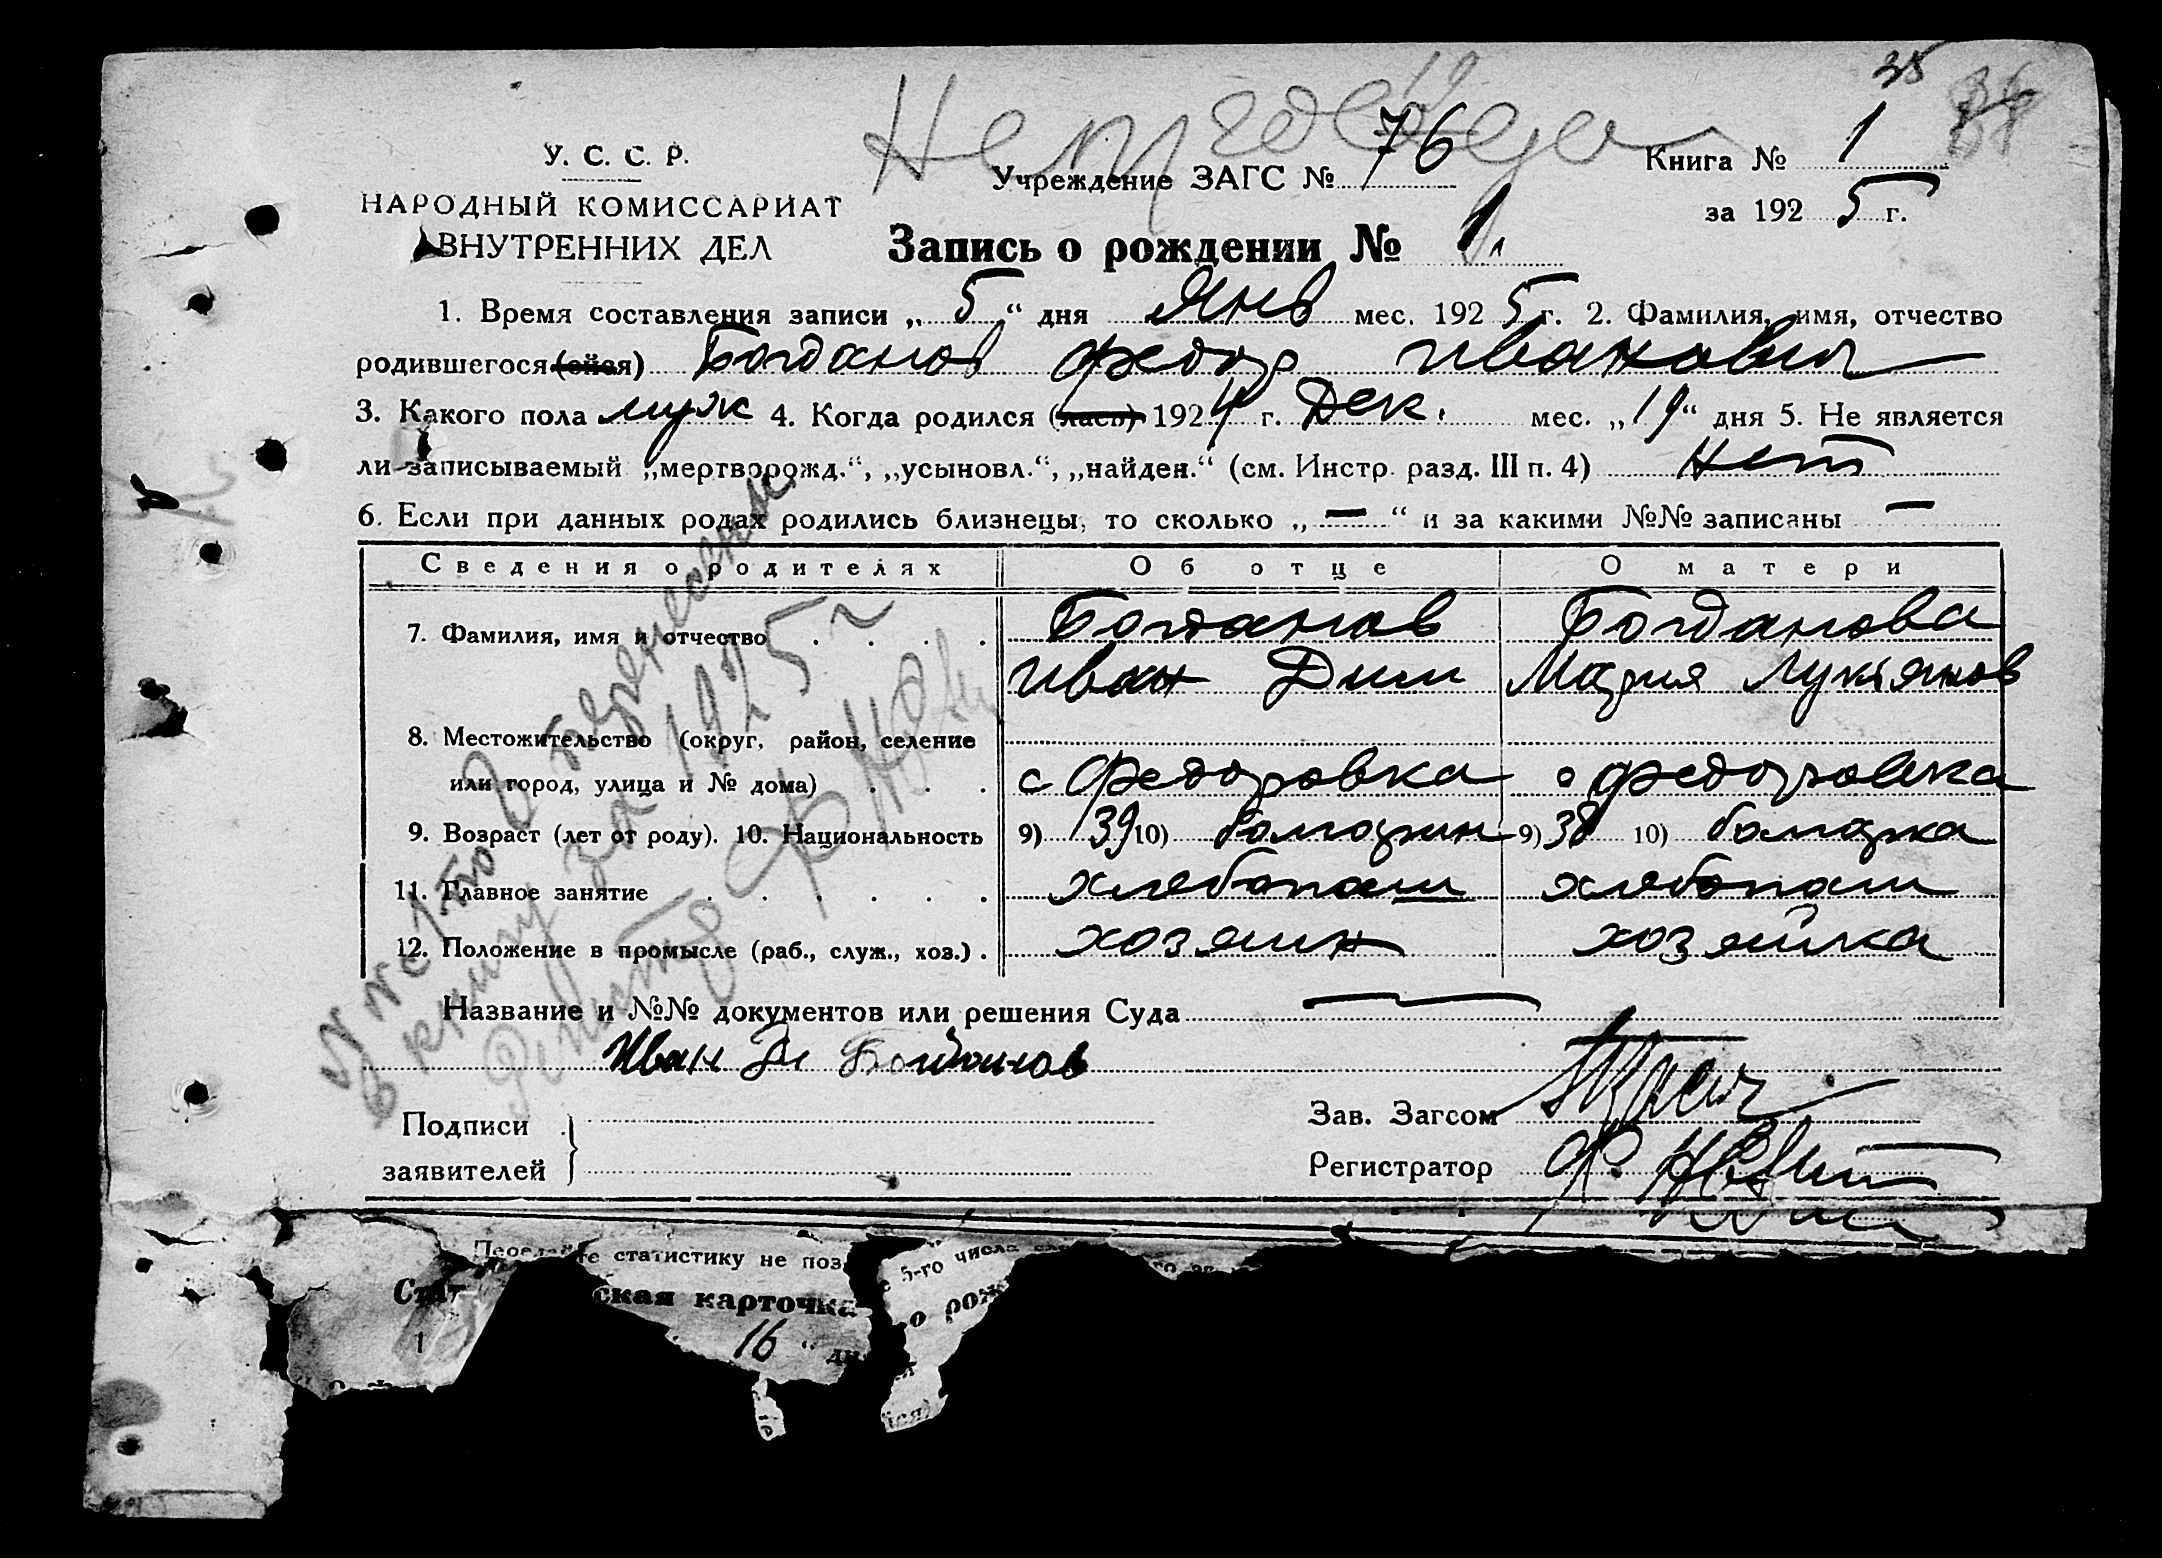 38
У. С. С. Р.
Учреждение ЗАГС № 76
Книга № 1
НАРОДНЫЙ КОМИССАРИАТ
за 1925 г.
ВНУТРЕННИХ ДЕЛ
Запись о рождении № 1.
1. Время составления записи „ 5 “ дня Янв мес. 1925 г. 2. Фамилия, имя, отчество
родившегося (ейся) Богданов Федор Иванович
3. Какого пола муж 4. Когда родился (лась) 1924 г. Дек. мес. „19“ дня 5. Не является
ли записываемый „мертворожд.“, „усыновл.“, „найден.“ (см. Инстр. разд. III п. 4) Нет
6. Если при данных родах родились близнецы, то сколько „ — “ и за какими №№ записаны —
Сведения о родителях Об отце О матери
7. Фамилия, имя и отчество . . . . Богданов Богданова
Иван Дим Мария Лукьянов
8. Местожительство (округ, район, селение
или город, улица и № дома) . . . с Федоровка с Федоровка
9. Возраст (лет от роду). 10. Национальность 9) 39 10) болгарин 9) 38 10) болгарка
11. Главное занятие . . . . . . хлебопаш хлебопаш
12. Положение в промысле (раб., служ., хоз.) . хозяин хозяйка
Название и №№ документов или решения Суда —
Иван Ди Богданов
Подписи
заявителей
Зав. Загсом
Регистратор Ф.
Передайте статистику не поз
5-го числа
Стат ская карточка о рож
1 16 “ дн